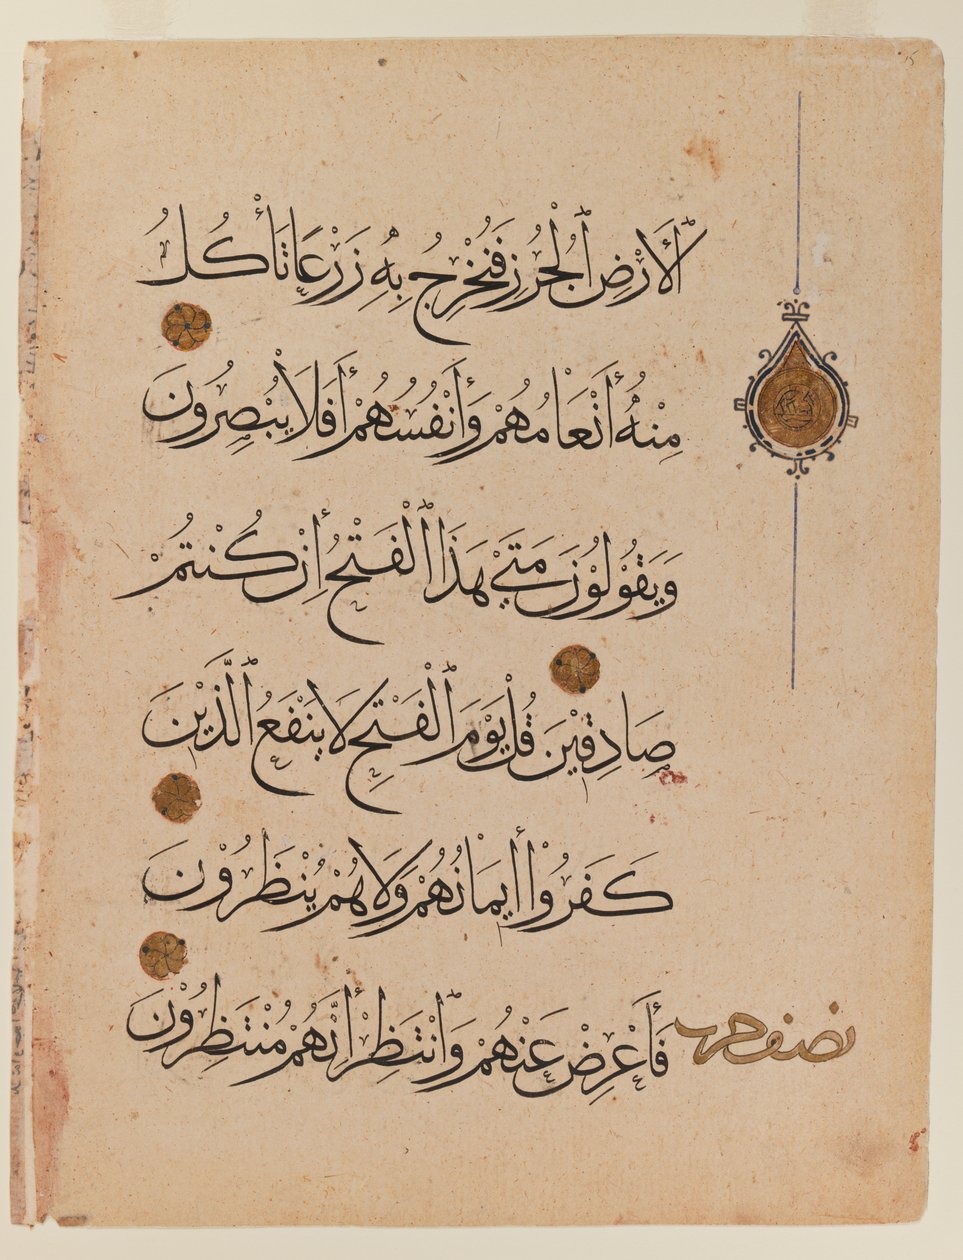 ٱلْأَرْضِ ٱلْجُرُزِ فَنُخْرِجُ بِهِ زَرْعًا تَأْكُلُ
مِنْهُ أَنْعَامُهُمْ وَأَنْفُسُهُمْ أَفَلَا يُبْصِرُونَ
وَيَقُولُونَ مَتَى هَذَا ٱلْفَتْحُ إِنْ كُنْتُمْ
صَادِقِينَ قُلْ يَوْمَ ٱلْفَتْحِ لَا يَنْفَعُ ٱلَّذِينَ
كَفَرُوْا إِيمَانُهُمْ وَلَا هُمْ يُنْظَرُونَ
فَأَعْرِضْ عَنْهُمْ وَٱنْتَظِرْ إِنَّهُمْ مُنْتَظِرُونَ
نصف حزب